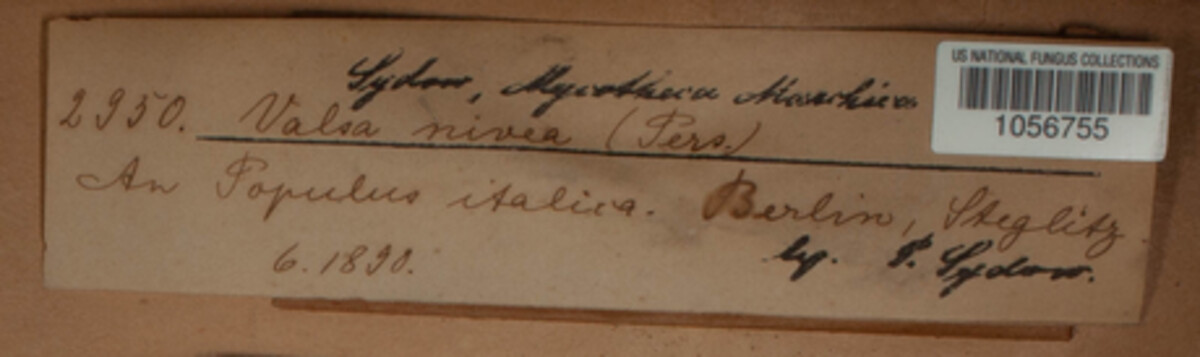 Sydow, Mycotheca Marchica
2950. Valsa nivea (Pers.)
An Populus italica. Berlin, Steglitz
6. 1890. lg. P. Sydow.
US NATIONAL FUNGUS COLLECTIONS
1056755